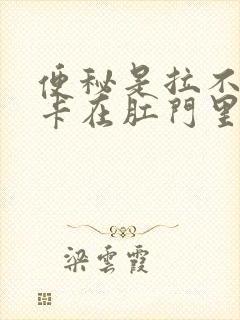 便秘是拉不
卡在肛門里
梁雲霞